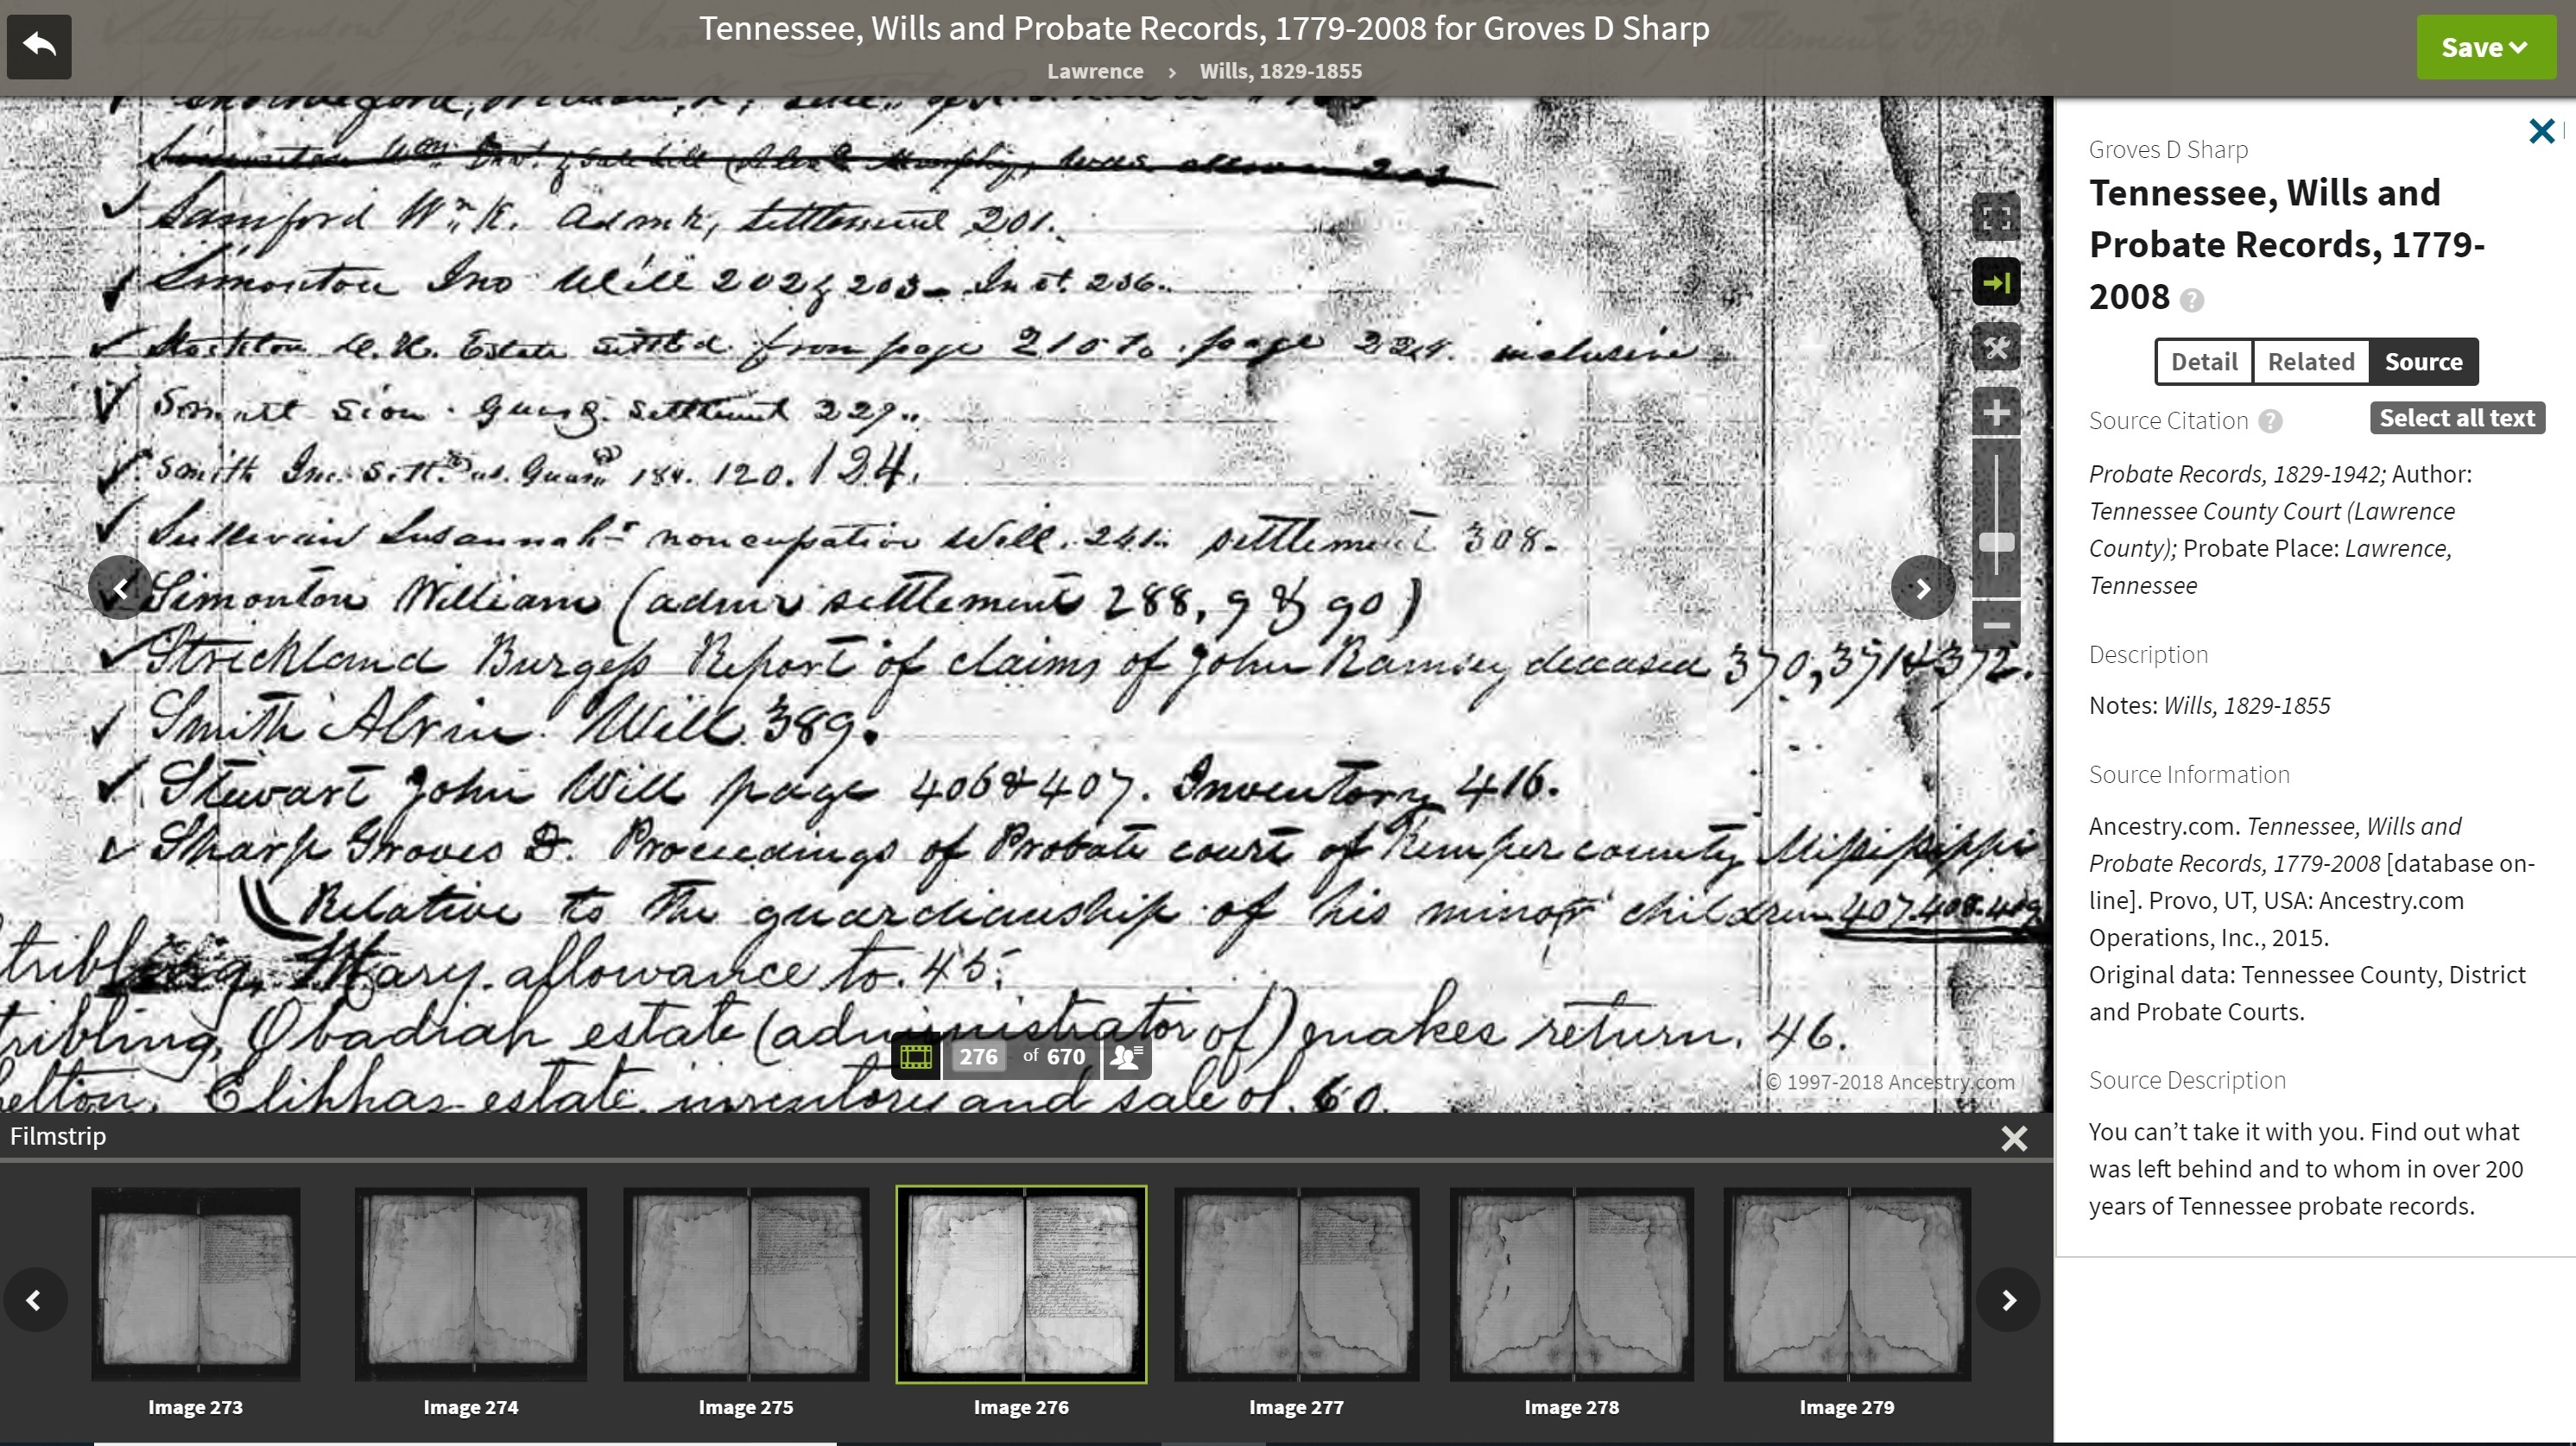 Tennessee, Wills and Probate Records, 1779-2008 for Groves D Sharp
Lawrence › Wills, 1829-1855
Save
Samford Wm K. Admr, settlement 201.
Simonton Jno Will 202 & 203 - Invt. 236.
Estate settled from page 210 to page 224. inclusive
Sion. Guard. Settlement 229..
Smith Jno. Sett. as. Guard 184. 120. 124.
Sullivan Susannah noncupative Will. 241. settlement 308.
Simonton William (admr settlement 288, 9 & 90)
Strickland Burgess Report of claims of John Ramsey deceased 370, 371 & 372.
Smith Alvin. Will. 389.
Stewart John Will page 406 & 407. Inventory 416.
Sharp Groves D. Proceedings of Probate court of Kemper county Mississippi
Relative to the guardianship of his minor children 407.408.409
tribling, Mary. allowance to. 45.
ribling, Obadiah estate (administrator of) makes return. 46.
elton, Eliphas estate, inventory and sale of. 60.
276 of 670
© 1997-2018 Ancestry.com
Filmstrip
Image 273
Image 274
Image 275
Image 276
Image 277
Image 278
Image 279
Groves D Sharp
Tennessee, Wills and
Probate Records, 1779-
2008 ?
Detail Related Source
Source Citation ? Select all text
Probate Records, 1829-1942; Author:
Tennessee County Court (Lawrence
County); Probate Place: Lawrence,
Tennessee
Description
Notes: Wills, 1829-1855
Source Information
Ancestry.com. Tennessee, Wills and
Probate Records, 1779-2008 [database on-
line]. Provo, UT, USA: Ancestry.com
Operations, Inc., 2015.
Original data: Tennessee County, District
and Probate Courts.
Source Description
You can’t take it with you. Find out what
was left behind and to whom in over 200
years of Tennessee probate records.